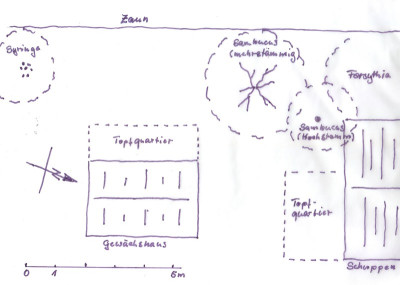 Zaun
Syringa
Sambucus
(mehrstämmig)
Forsythia
Sambucus
(Hochstamm)
Topfquartier
Topf-
quartier
Gewächshaus
Schuppen
0 1 5m